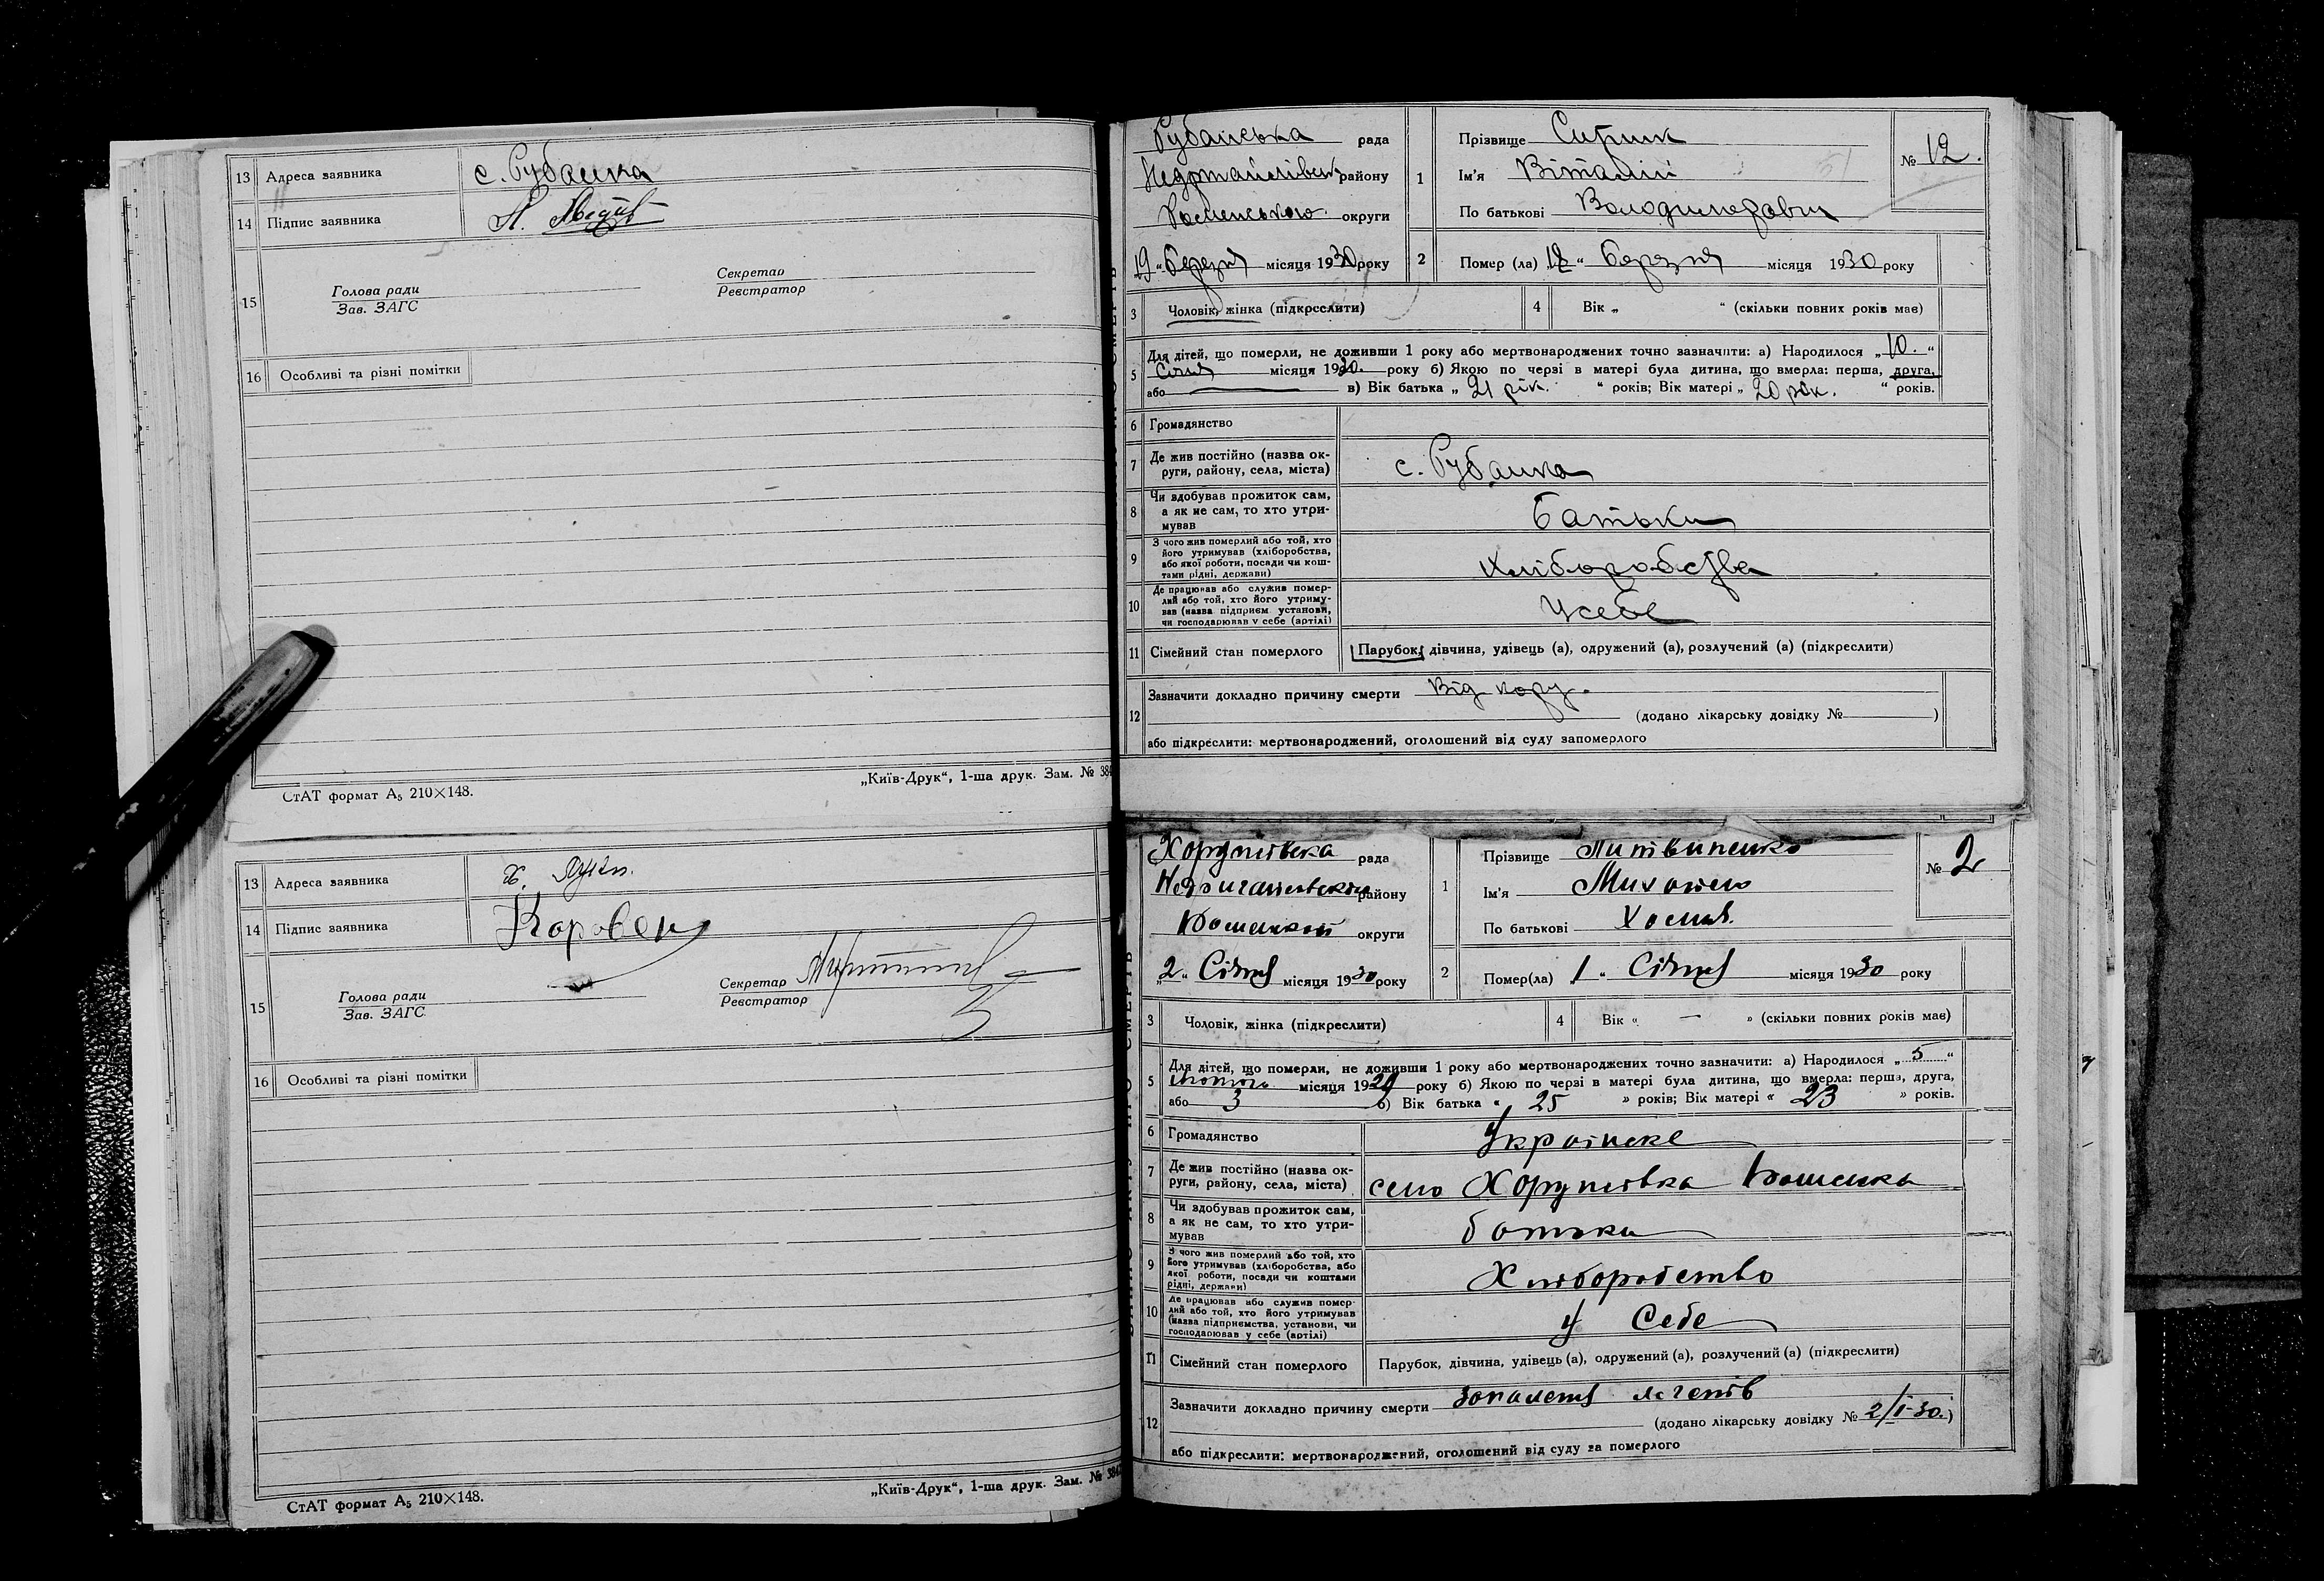 13 Адреса заявника с. Рубанка
14 Підпис заявника
15 Голова ради Секретар
Зав. ЗАГС Реєстратор
16 Особливі та різні помітки
СтАТ формат А5 210×148. „Київ-Друк“, 1-ша друк. Зам. № 384
Рубанська рада
району
Роменською округи
19 „ березня місяця 1930 року
1 Прізвище
Ім'я Віталій
По батькові Володимирович
№ 12.
2 Помер (ла) „ березня місяця 1930 року
3 Чоловік, жінка (підкреслити) 4 Вік „ “ (скільки повних років має)
5 Для дітей, що померли, не доживши 1 року або мертвонароджених точно зазначити: а) Народилося „ 10. “
Січня місяця 1930. року б) Якою по черзі в матері була дитина, що вмерла: перша, друга,
або в) Вік батька „ 21 рік. “ років; Вік матері „ 20 рок. “ років.
6 Громадянство
7 Де жив постійно (назва ок-
руги, району, села, міста) с. Рубанка
8 Чи здобував прожиток сам,
а як не сам, то хто утри-
мував Батьки
9 З чого жив померлий або той, хто
його утримував (хліборобства,
або якої роботи, посади чи кош-
тами рідні, держави) Хліборобства
10 Де працював або служив помер-
лий або той, хто його утриму-
вав (назва підприєм. установи,
чи господарював у себе (артілі) У себе
11 Сімейний стан померлого Парубок, дівчина, удівець (а), одружений (а), розлучений (а) (підкреслити)
12 Зазначити докладно причину смерти Від кору.
(додано лікарську довідку № )
або підкреслити: мертвонароджений, оголошений від суду запомерлого
13 Адреса заявника х.
14 Підпис заявника
15 Голова ради Секретар
Зав. ЗАГС Реєстратор
16 Особливі та різні помітки
СтАТ формат А5 210×148. „Київ-Друк“, 1-ша друк. Зам. № 384
Хорунівська рада
району
округи
„2„ Січня місяця 1930 року
1 Прізвище Литвиненко
Ім'я Михайло
По батькові
№ 2
2 Помер(ла) „1 “ Січня місяця 1930 року
3 Чоловік, жінка (підкреслити) 4 Вік « — » (скільки повних років має)
5 Для дітей, що померли, не доживши 1 року або мертвонароджених точно зазначити: а) Народилося „ 5 “
лютого місяця 1929 року б) Якою по черзі в матері була дитина, що вмерла: перша, друга,
або 3 б) Вік батька « 25 » років; Вік матері « 23 » років.
6 Громадянство Українске
7 Де жив постійно (назва ок-
руги, району, села, міста) село Хорунівка
8 Чи здобував прожиток сам,
а як не сам, то хто утри-
мував батьки
9 З чого жив померлий або той, хто
його утримував (хліборобства, або
якої роботи, посади чи коштами
рідні, держави) Хліборобство
10 Де працював або служив помер-
лий або той, хто його утримував
(назва підприємства, установи, чи
господарював у себе (артілі) у Себе
11 Сімейний стан померлого Парубок, дівчина, удівець (а), одружений (а), розлучений (а) (підкреслити)
12 Зазначити докладно причину смерти Запаленя легенів
(додано лікарську довідку № 2/I-30.)
або підкреслити: мертвонароджений, оголошений від суду за померлого